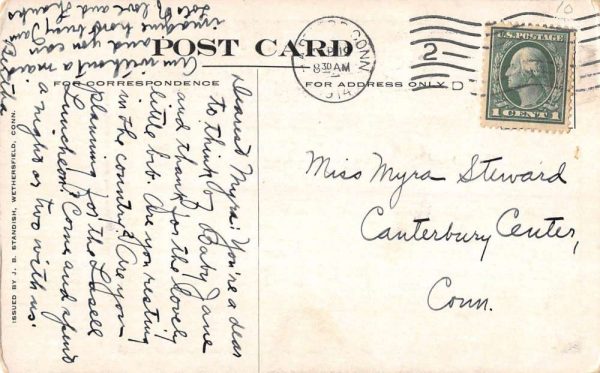 POST CARD
FOR CORRESPONDENCE
FOR ADDRESS ONLY
ISSUED BY J. B. STANDISH, WETHERSFIELD, CONN.
CONN.
8 30 AM
2
D
10
U.S. POSTAGE
1 CENT 1
Miss Myra Steward
Canterbury Center,
Conn.
Dearest Myra: You're a dear
to think of Baby Jane
and thank for the lovely
little bib. Are you resting
in the country? Are you
planning for the Lasell
Luncheon? Come and spend
a night or two with us.
Am without a maid
and you can
imagine how busy I am
Lots of love and thanks